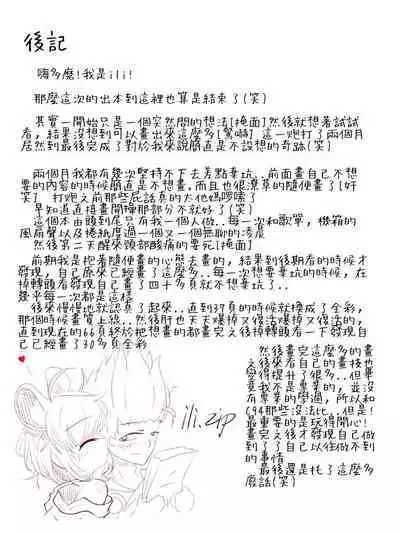 後記
嗨多魔!我是ili!
那麼這次的出本到這裡也算是結束了(笑)
其實一開始只是一個突然間的想法[掩面]然後就想著試試
看, 結果沒想到可以畫出來這麼多[驚嚇] 這一炮打了兩個月
居然到最後完成了對於我來說簡直是不設想的奇跡(笑)
兩個月我都有幾次堅持不下去差點棄坑..前面畫自己不想
要的內容的時候簡直是不想畫.而且也很潦草的隨便畫了[奸
笑] 打炮之前那些屁話真的太他媽囉嗦了
早知道直接畫開操那部分不就好了(笑)
這個本由頭到尾只有我一個人做..每一次和歌單, 機箱的
風扇聲以及捲紙度過一個又一個無聊的凌晨
然後第二天醒來頸部酸痛的要死[掩面]
前期我是抱著隨便畫的心態去畫的, 結果到後期看的時候才
發現, 自己原來已經畫了這麼多..每一次想要棄坑的時候, 在
掉轉頭看發現自己畫了四十多頁就不想棄坑了..
幾乎每一次都是這樣
後來慢慢地就認真了起來..直到37頁的時候就換成了全彩,
那個時候畫質上線..然後肝也天天爆掉又復活爆掉又復活的,
直到現在的66頁終於把想畫的都畫完之後掉轉頭看一下發現自
己已經畫了30多頁全彩
然後畫完這麼多的畫
之後來看自己的畫技也
覺得提升了很多..但畢
竟我不是專業的, 並沒
有專業的學過, 所以和
C94那些沒法比..但是!
最重要的是玩得開心!
畫完之後才發現自己做
到了了自己以往做不到
的事情
最後還是托了這麼多
廢話(笑)
ili.zip